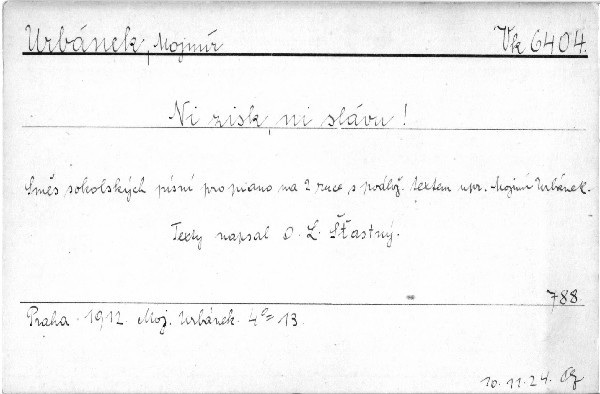 Urbánek, Mojmír Vk 6404.
Ni zisk, ni slávu!
Směs sokolských písní pro piano na 2 ruce s podlož. textem upr. Mojmír Urbánek.
Texty napsal O. L. Šťastný.
788
Praha. 1912. Moj. Urbánek. 4° 13.
10. 11. 24.